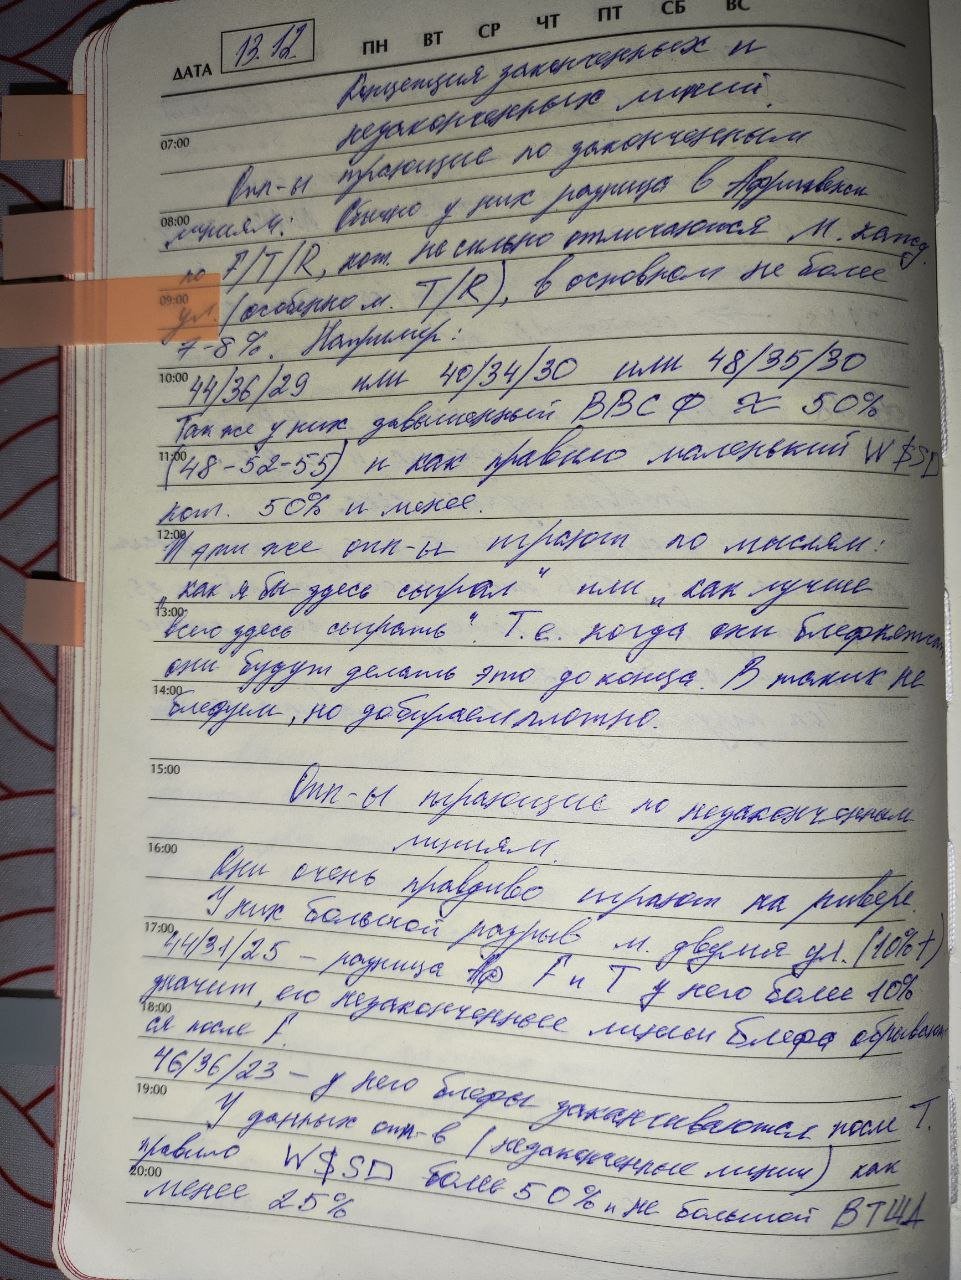 ДАТА 13.12 ПН ВТ СР ЧТ ПТ СБ ВС
Концепция законченных и
07:00
незаконченных линий.
Опп-ы играющие по законченным
08:00
линиям: Обычно у них разница в Агрессии
по F/T/R, кот. не сильно отличаются м. кажд.
09:00
ул. (особенно м. T/R), в основном не более
7-8%. Например:
10:00
44/36/29 или 40/34/30 или 48/35/30
Так же у них завышенный ВВСФ ≈ 50%
11:00
(48-52-55) и как правило маленький W$SD
кот. 50% и менее.
12:00
Эти же опп-ы играют по мыслям:
„как я бы здесь сыграл" или „как лучше
13:00
всего здесь сыграть". Т.е. когда они блефуют
они будут делать это до конца. В таких не
14:00
блефуем, но добираем плотно.
15:00
Опп-ы играющие по незаконченным
линиям.
16:00
Они очень правдиво играют на ривере.
У них большой разрыв м. двумя ул. (10%+)
17:00
44/31/25 – разница F и T у него более 10%
значит, его незаконченные линии блефа обрывают
18:00
ся после f.
46/36/23 – у него блефы заканчиваются после T.
19:00
У данных опп-в (незаконченные линии) как
правило W$SD более 50% и не большой ВТШД
20:00
менее 25%